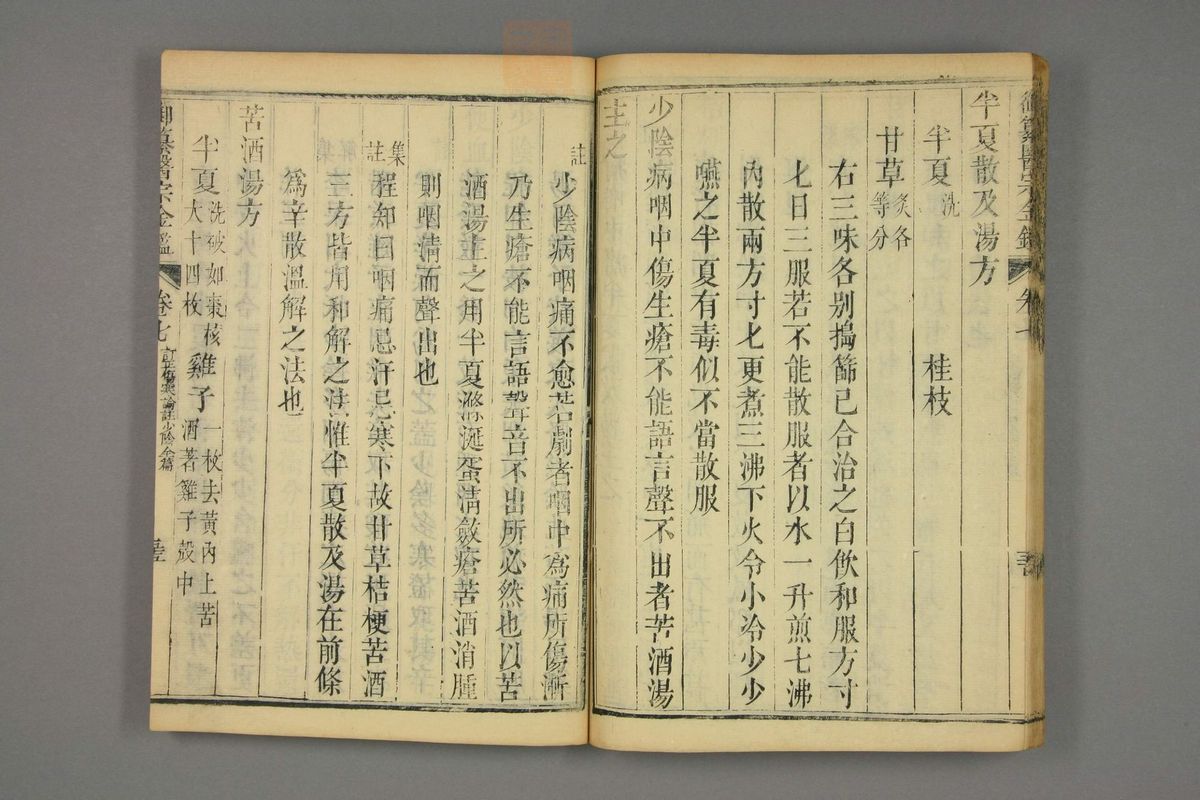 半夏散及湯方
半夏洗 桂枝
甘草炙各等分
右三味各别搗篩已合治之白飲和服方寸
匕日三服若不能散服者以水一升煎七沸
內散兩方寸匕更煮三沸下火令小冷少少
嚥之半夏有毒似不當散服
少陰病咽中傷生瘡不能語言聲不出者苦酒湯
主之
註 少陰病咽痛不愈若劇者咽中為痛所傷漸
乃生瘡不能言語聲音不出所必然也以苦
酒湯主之用半夏滌涎蛋清斂瘡苦酒消腫
則咽清而聲出也
集註 程知曰咽痛忌汗忌寒下故甘草桔梗苦酒
三方皆用和解之法惟半夏散及湯在前條
為辛散溫解之法也
苦酒湯方
半夏洗破如棗核大十四枚 雞子一枚去黃內上苦酒著雞子殼中
御纂醫宗金鑑 卷七 訂正傷寒論註少陰全篇